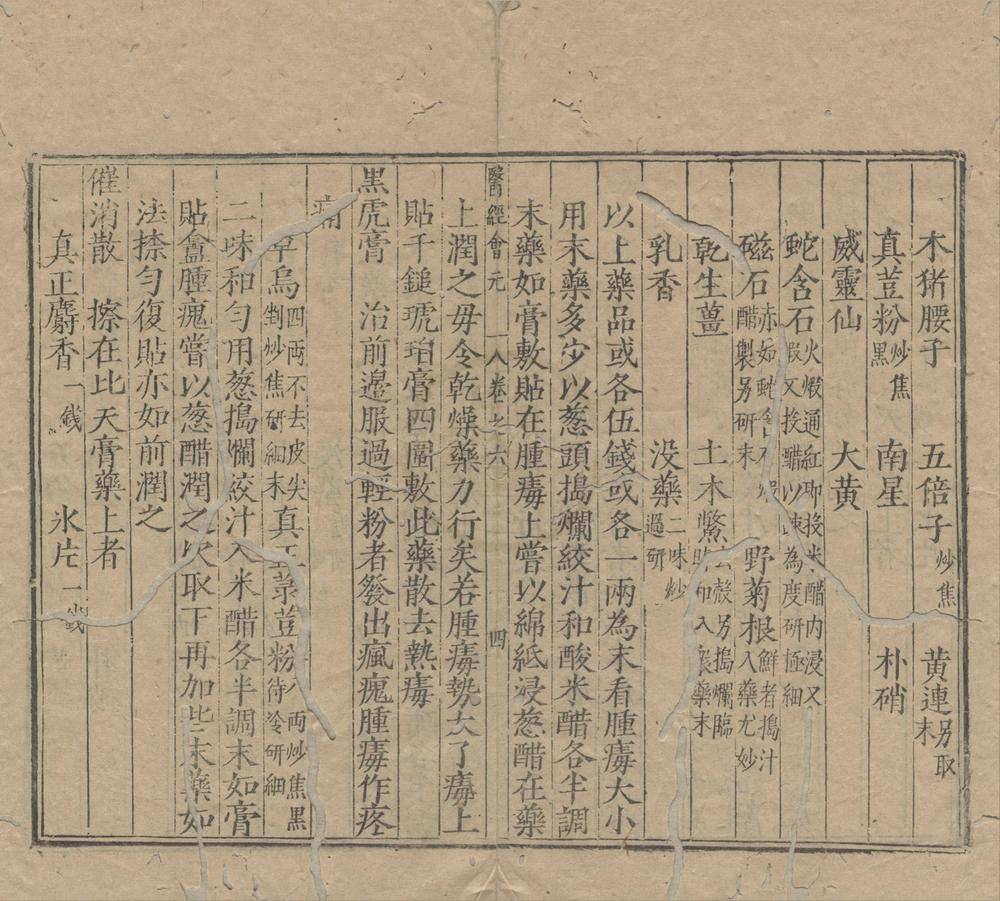 木猪腰子　五倍子炒焦　黃連另取末
真荳粉炒焦黑　南星　朴硝
威靈仙　大黃
蛇含石火煆通紅即投米醋內浸又煆又投醋以酥為度研極細
磁石赤如蛇含石煆醋製另研末　野菊根鮮者搗汁入藥尤妙
乾生薑　土木鱉去殼另搗爛臨時和入衆藥末
乳香　没藥二味炒過研
以上藥品或各伍錢或各一兩為末看腫毒大小
用末藥多少以葱頭搗爛絞汁和酸米醋各半調
末藥如膏敷貼在腫毒上嘗以綿紙浸葱醋在藥
醫經會元　人卷之六　四
上潤之毋令乾燥藥力行矣若腫毒勢大了毒上
貼千鎚琥珀膏四圍敷此藥散去熱毒
黑虎膏　治前邊服過輕粉者發出瘋塊腫毒作疼
痛
草烏四兩不去皮尖剉炒焦研細末　真正菉荳粉八兩炒焦黑待冷研細
二味和勻用葱搗爛絞汁入米醋各半調末如膏
貼盦腫塊嘗以葱醋潤之次取下再加些末藥如
法搽勻復貼亦如前潤之
催消散　擦在比天膏藥上者
真正麝香一錢　氷片一錢